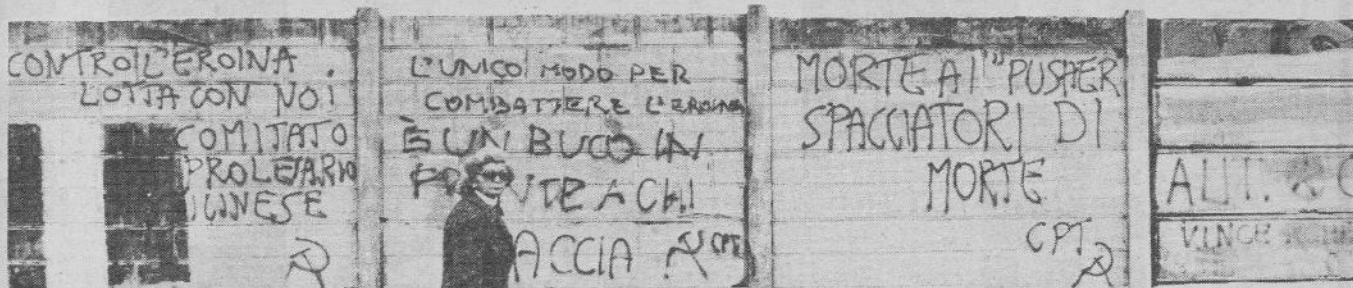 CONTRO L'EROINA.
LOTTA CON NOI
COMITATO
PROLETARIO
L'UNICO MODO PER
COMBATTERE L'EROINA
È UN BUCO IN
A CHI
ACCIA CPT
MORTE AI "PUSHER
SPACCIATORI DI
MORTE
CPT
AUT.
VINCE